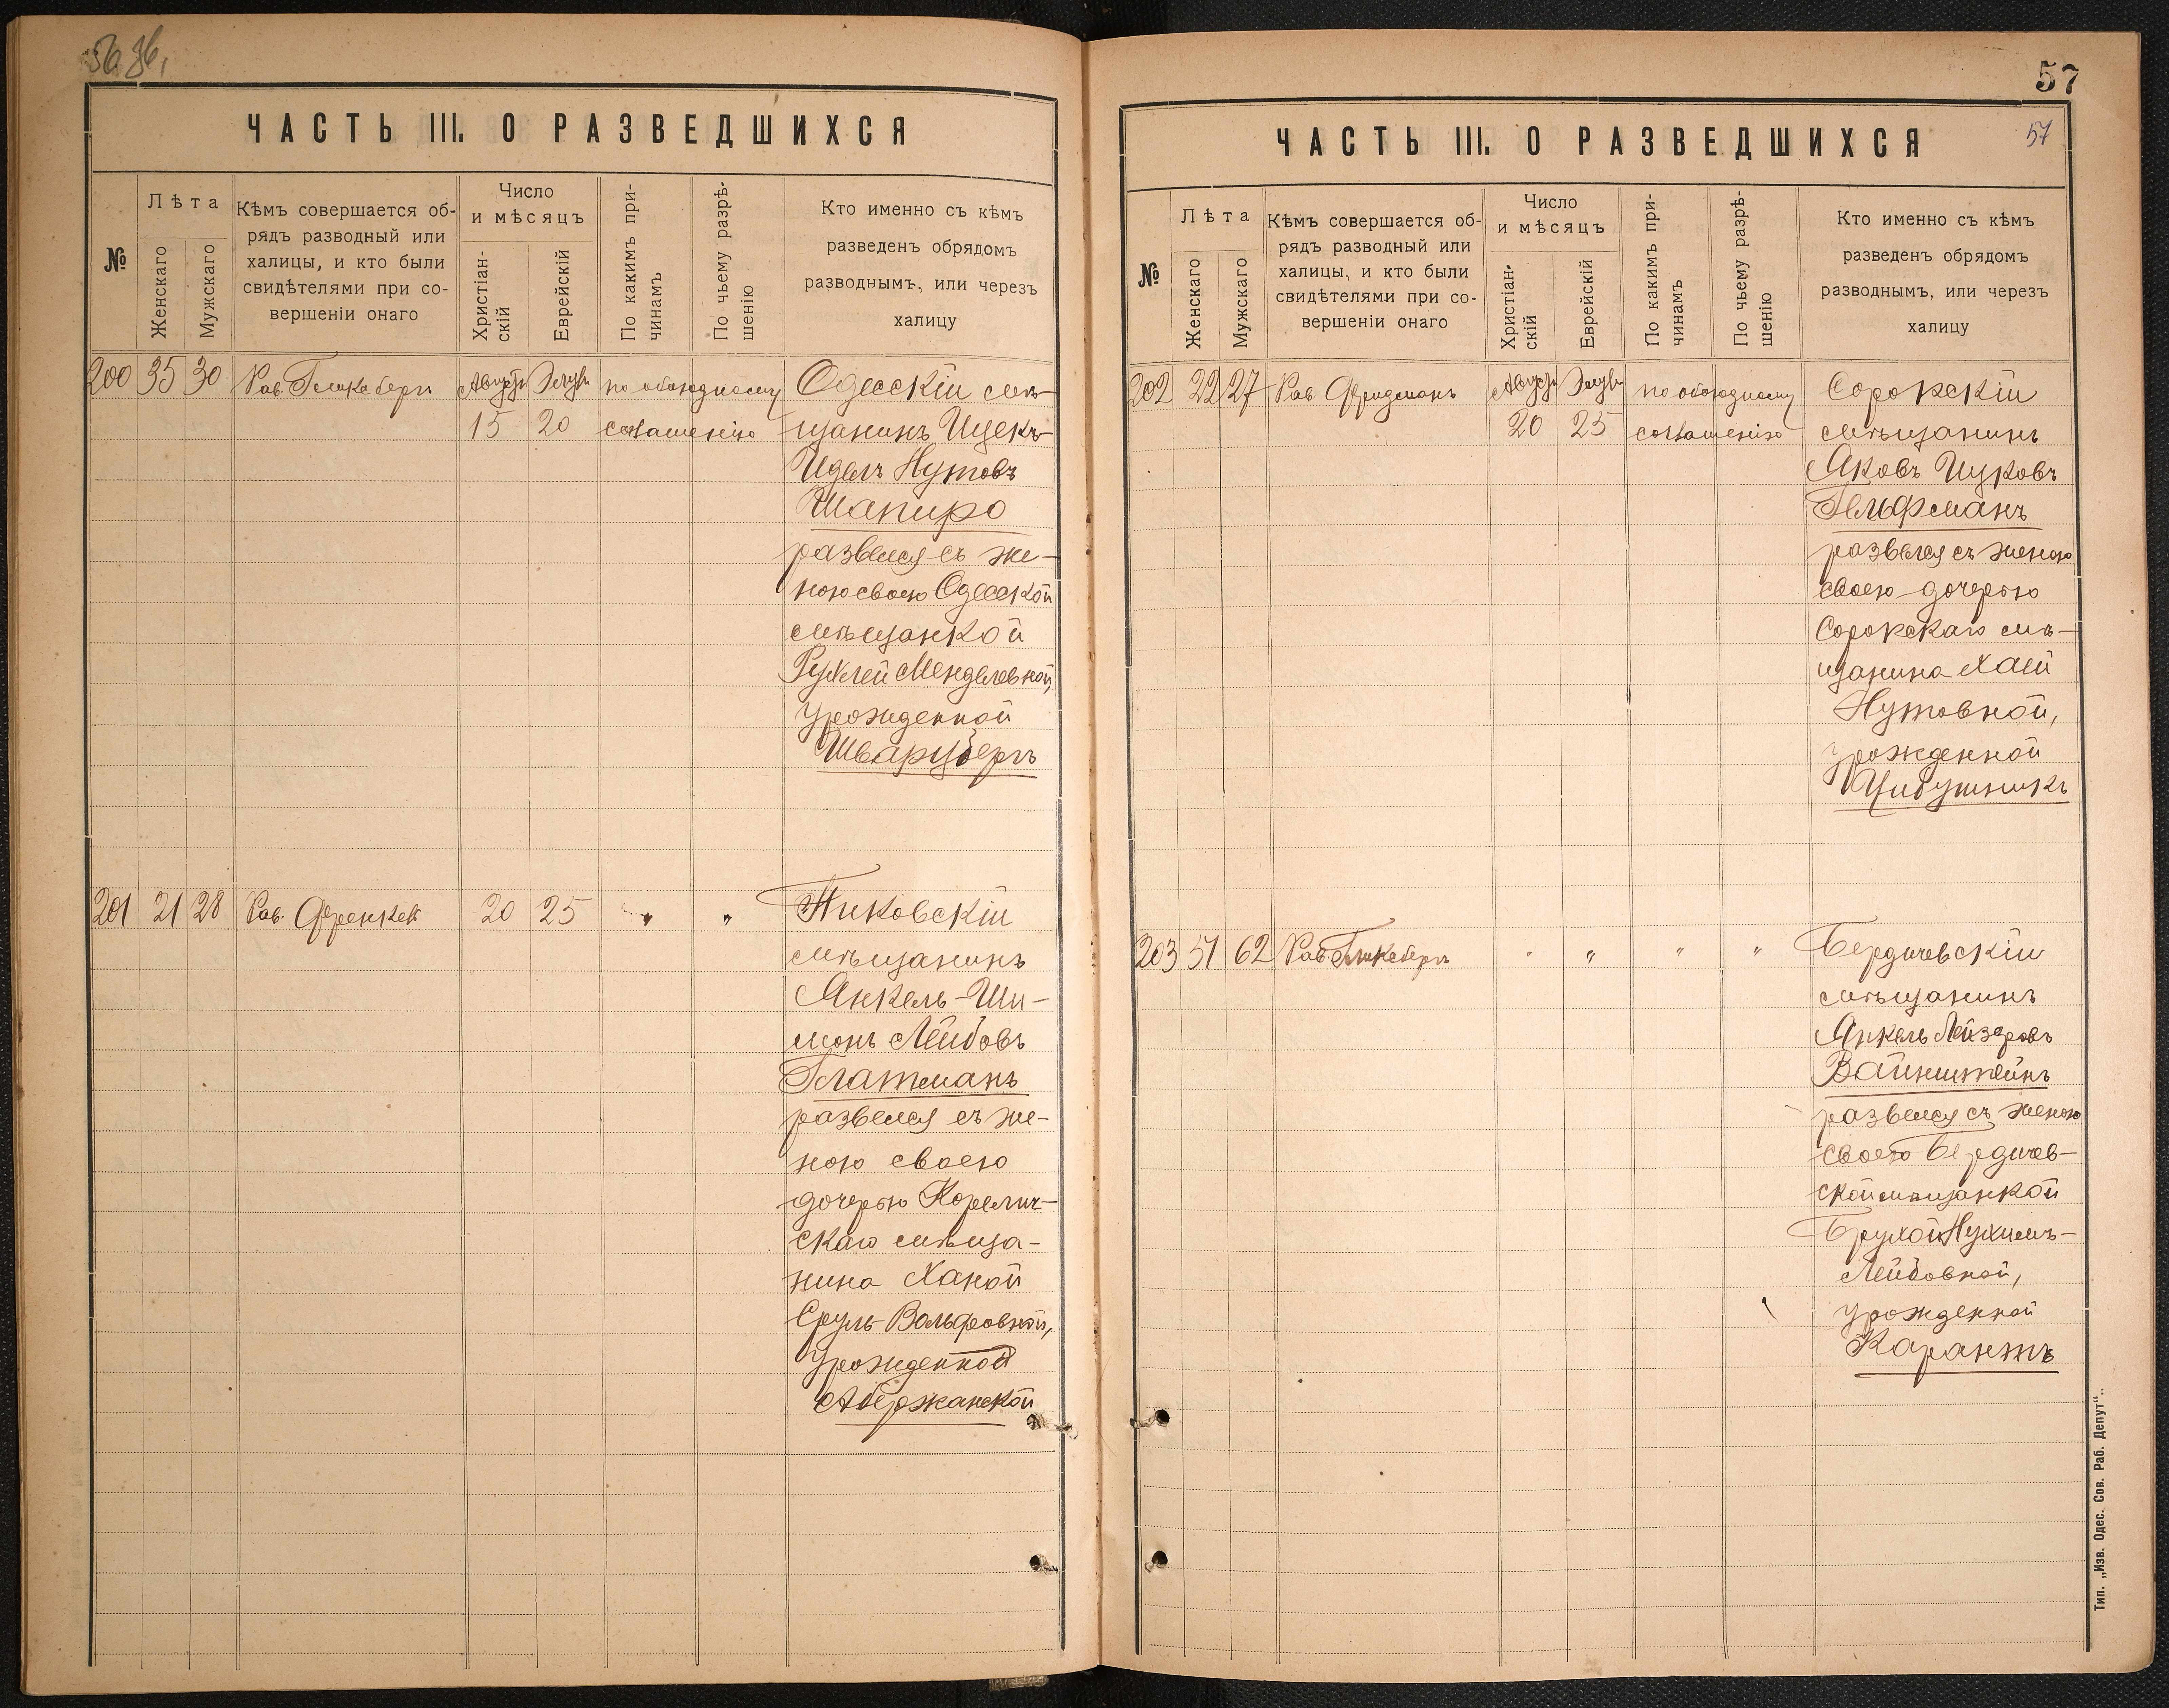 56 36,
ЧАСТЬ III. О РАЗВЕДШИХСЯ
№
Лѣта
Женскаго
Мужскаго
Кѣмъ совершается об-
рядъ разводный или
халицы, и кто были
свидѣтелями при со-
вершеніи онаго
Число
и мѣсяцъ
Христіан-
скій
Еврейскій
По какимъ при-
чинамъ
По чьему разрѣ-
шенію
Кто именно съ кѣмъ
разведенъ обрядомъ
разводнымъ, или черезъ
халицу
200 35 30 Рав. Гликсбергъ Августъ Элулъ по обоюдному Одесскій мѣ-
15 20 соглашенію щанинъ Ицекъ-
Идель Нутовъ
Шапиро
развелся съ же-
ною своею Одесской
мѣщанкой
Рухлей Менделевной,
урожденной
Шварцбергъ
201 21 28 Рав. Френкель 20 25 " " Пиковскій
мѣщанинъ
Янкель-Ши-
монъ Лейбовъ
Глатманъ
развелся съ же-
ною своею
дочерью Корелич-
скаго мѣща-
нина Ханой
Сруль-Вольфовной,
урожденной
Абержанской
57
57
ЧАСТЬ III. О РАЗВЕДШИХСЯ
№
Лѣта
Женскаго
Мужскаго
Кѣмъ совершается об-
рядъ разводный или
халицы, и кто были
свидѣтелями при со-
вершеніи онаго
Число
и мѣсяцъ
Христіан-
скій
Еврейскій
По какимъ при-
чинамъ
По чьему разрѣ-
шенію
Кто именно съ кѣмъ
разведенъ обрядомъ
разводнымъ, или черезъ
халицу
202 22 27 Рав. Фридманъ Августъ Элулъ по обоюдному Сорокскій
20 25 соглашенію мѣщанинъ
Яковъ Ицковъ
Гельфманъ
развелся съ женою
своею дочерью
Сорокскаго мѣ-
щанина Хаей
Нутовной,
урожденной
Цибушникъ
203 51 62 Рав. Гликсбергъ " " " " Бердичевскій
мѣщанинъ
Янкель Лейзеровъ
Вайнштейнъ
развелся съ женою
своею Бердичев-
ской мѣщанкой
Брухой Нухимъ-
Лейбовной,
урожденной
Карантъ
Тип. „Изв. Одес. Сов. Раб. Депут".